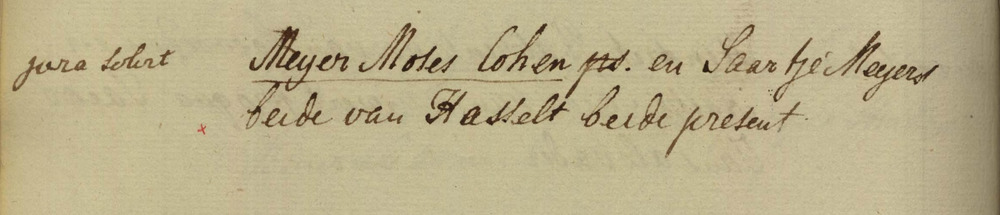 jura solvit Meyer Moses Cohen ps. en Saartje Meyers
beide van Hasselt beide present